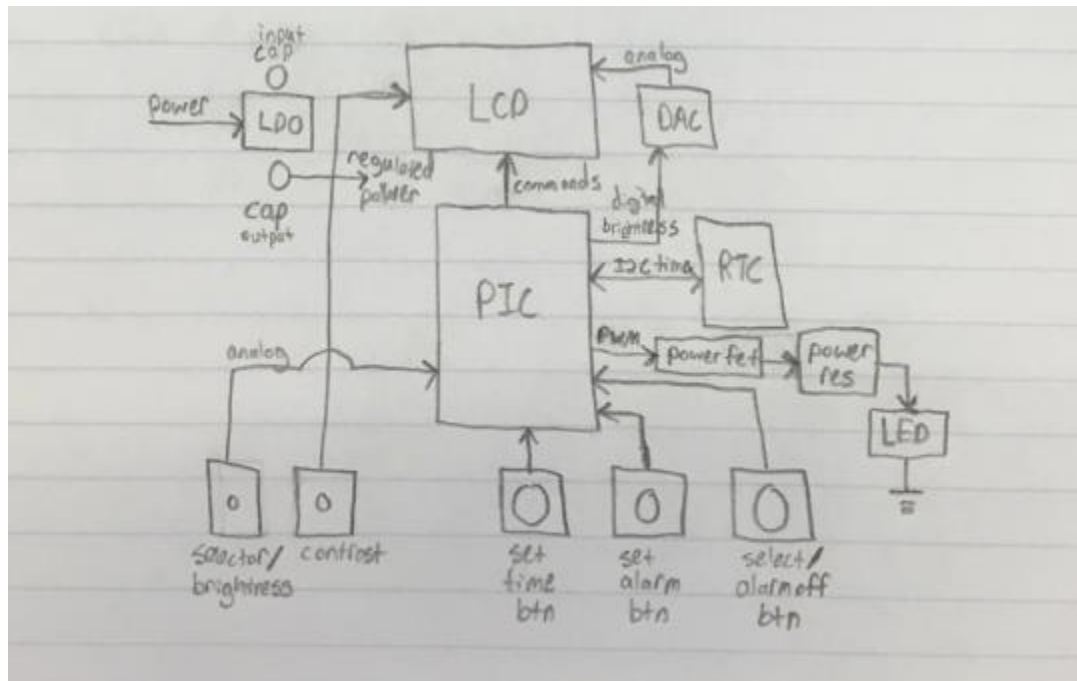 input
cap
power
LDO
LCD
analog
DAC
regulated
power
cap
output
commands
digital
brightness
PIC
I2C time
RTC
PWM
power fet
power
res
LED
analog
selector/
brightness
contrast
set
time
btn
set
alarm
btn
select/
alarm off
btn